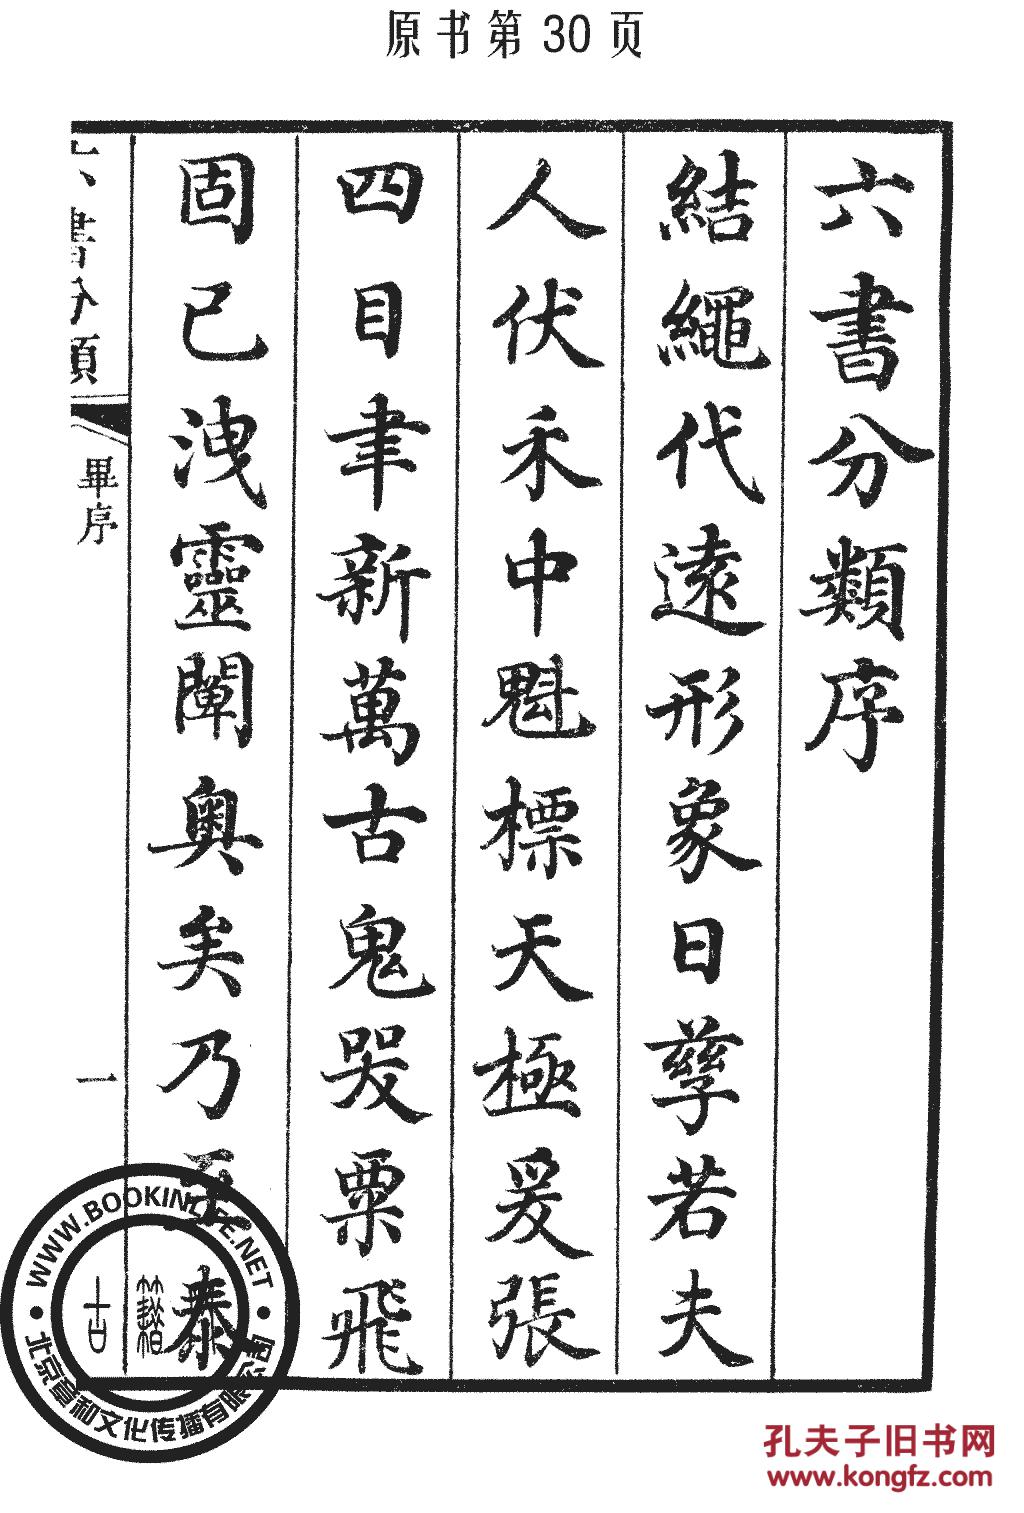 原书第30页
六書分類序
結繩代遠形象日孳若夫
人伏禾中魁標天極爰張
四目聿新萬古鬼哭粟飛
固已洩靈闡奧矣乃至秦
六書分類
畢序
一
WWW.BOOKINLIFE.NET
古籍
北京意和文化传播有限公司
孔夫子旧书网
www.kongfz.com